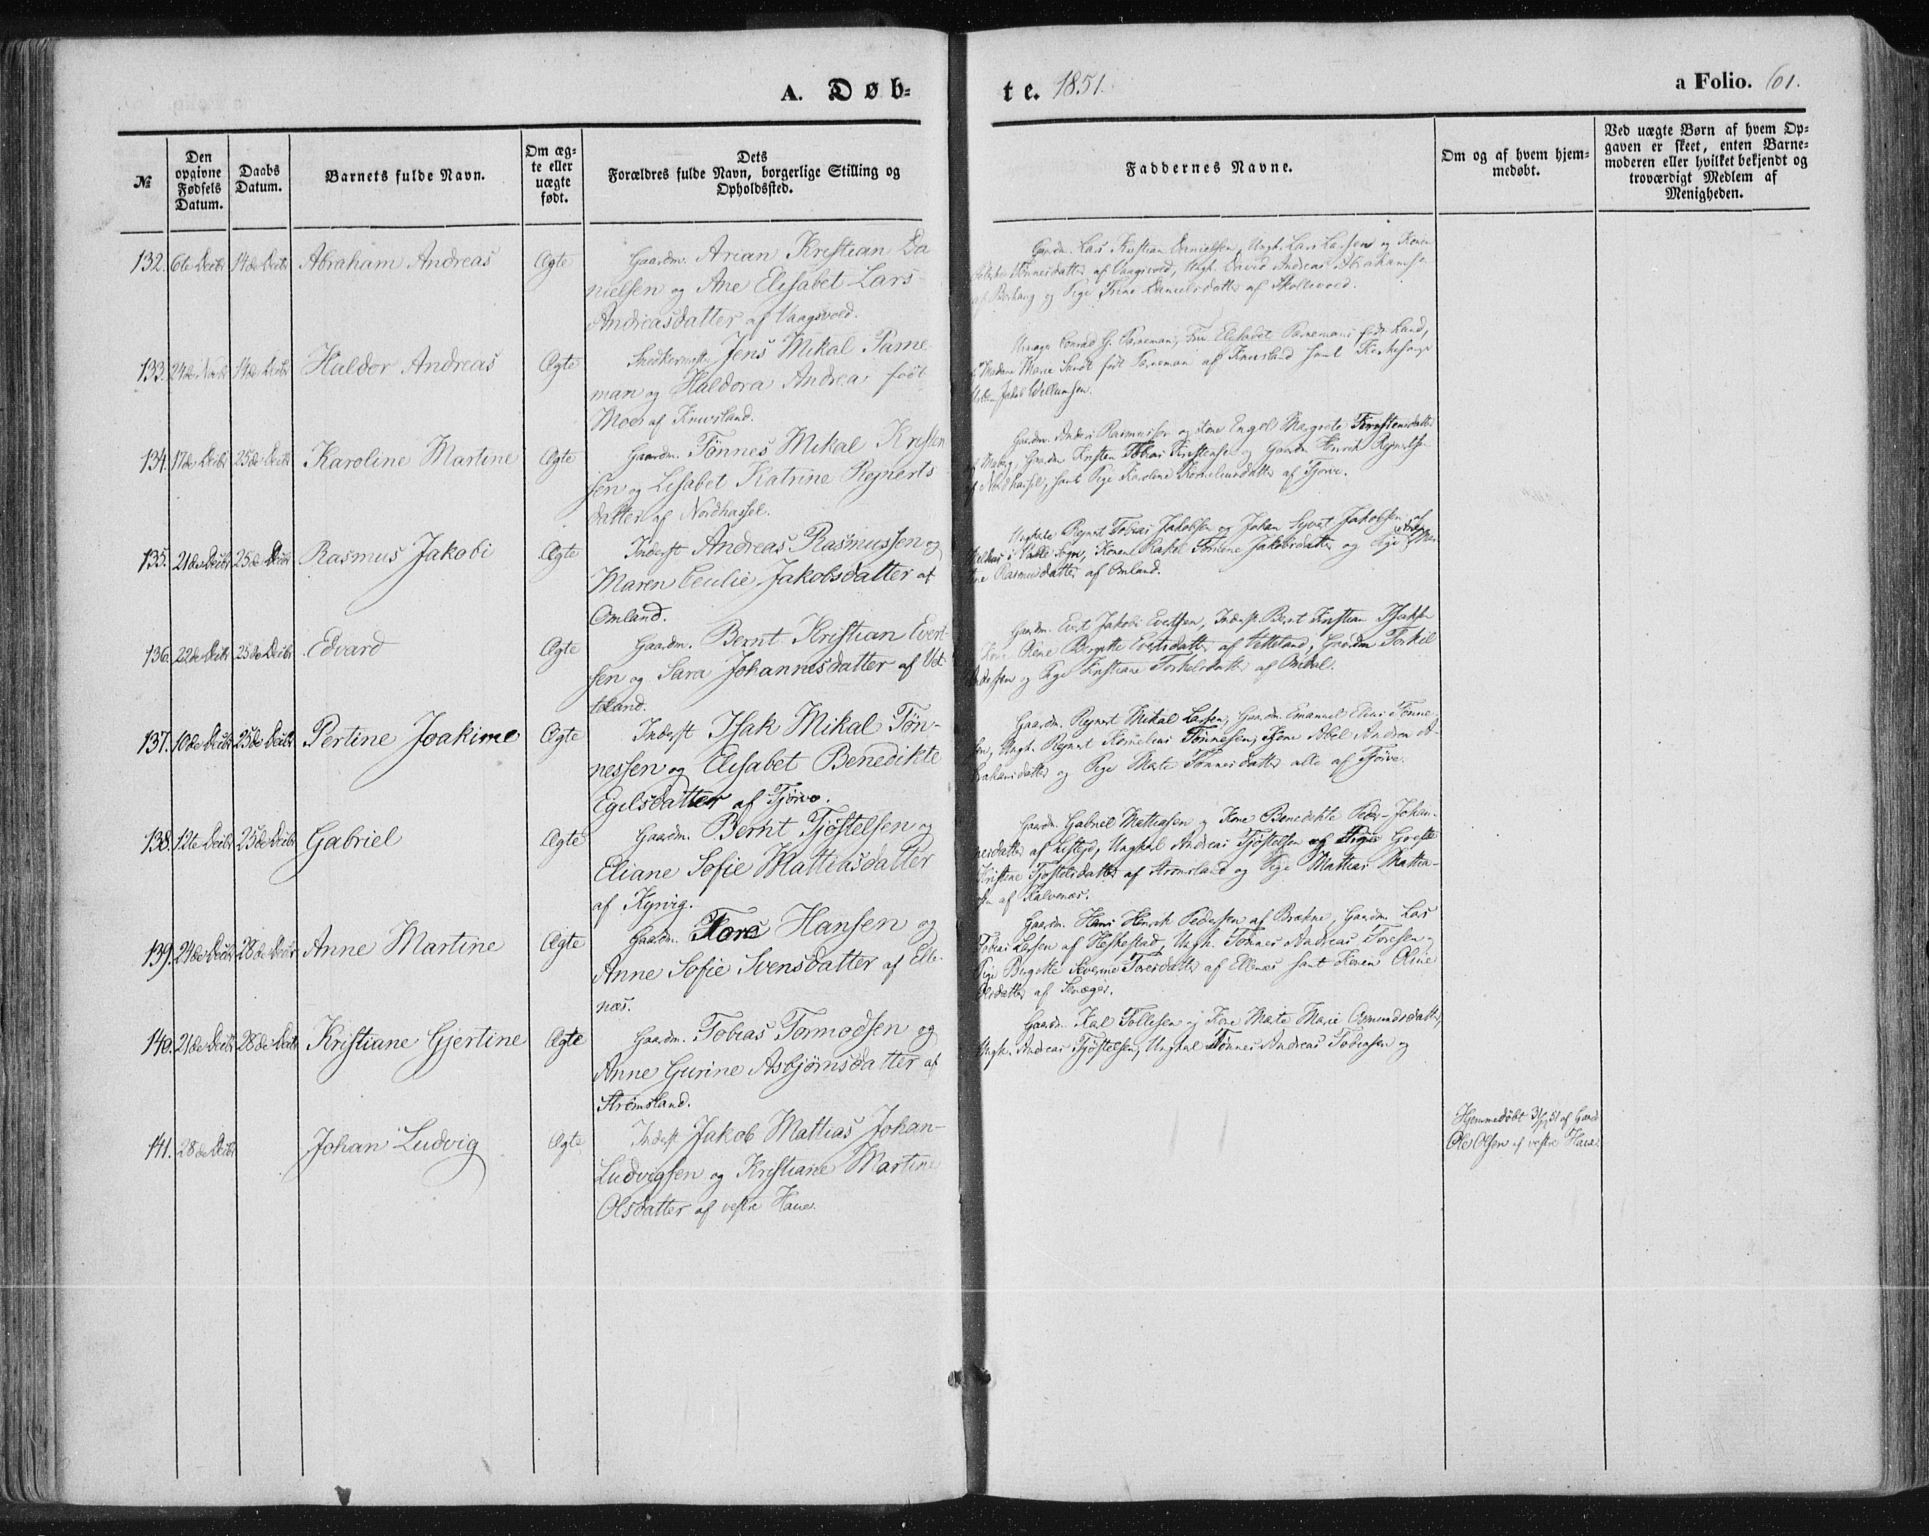 A. Døb-
te. 1851.
a Folio. 61.
№
Den opgivne Fødsels Datum.
Daabs Datum.
Barnets fulde Navn.
Om æg-
te eller
uægte
født.
Dets
Forældres fulde Navn, borgerlige Stilling og
Opholdssted.
Faddernes Navne.
Om og af hvem hjem-
medøbt.
Ved uægte Børn af hvem Op-
gaven er skeet, enten Barne-
moderen eller hvilket bekjendt og
troværdigt Medlem af
Menigheden.
132. 6te Decbr 14de Decbr Abraham Andreas Ægte Gaardm. Arian Kristian Da
nielsen og Ane Elisabet Lars
Andreasdatter af Vaagsvold.
Gaardm. Lars Kristian Danielsen, Ungk. Lars Larsen og Konen
Tønnesdatter af Vaagsvold, Ungk. David Andreas Abrahamse
af Borhaug og Pige Trine Danielsdatter af Skollevold.
133. 24de Novbr 14de Decbr Haldor Andreas Ægte Snedkermstr Jens Mikal Parne
man og Haldora Andrea født
Moe af Knivsland.
Conrad G. Parneman, Fru Elisabet Parnemans født Lund,
Madam Marie Sandt født Parneman af Knivsland samt Kirkesanger
Jakob Willumsen.
134. 17de Decbr 25de Decbr Karoline Martine Ægte Gaardm. Tønnes Mikal Kristen
sen og Lisabet Katrine Reinerts
datter af Nordhassel.
Gaardm. Anders Rasmussen og Kone Engel Margrete Torstensdatter
af Maberg, Gaardm Kristen Tobias Kristensen og Gaardm Henrik Reinertse
af Nordhassel, samt Pige Karoline Kornelius datter af Tjørve.
135. 21de Decbr 25de Decbr Rasmus Jakobi Ægte Inderst Andreas Rasmussen og
Maren Cecilie Jakobsdatter af
Omland.
Ungkarle Reinert Tobias Jakobsen og Johan Syvert Jakobsen af
i Valle Sogn, Konen Rakel Tomine Jakobsdatter og Pige
Rasmusdatter af Omland.
136. 22de Decbr 25de Decbr Edvard Ægte Gaardm. Bernt Kristian Evert
sen og Sara Johannesdatter af Vet
teland.
Gaardm. Evert Jakob Evertsen, Inderst Bernt Kristian Isaksen
Kone Olene Birgitte Evertsdatter af Vetteland, Gaardm Torkil
Andersen og Pige Kristiane Torkelsdatter af Omdal.
137. 10de Decbr 25de Decbr Pertine Joakime Ægte Inderst Isak Mikal Tøn-
nessen og Elisabet Benedikte
Egelsdatter af Tjørve.
Gaardm. Reinert Mikal Larsen, Gaardm. Emanuel Elias Tønne-
sen, Ungk. Reinert Kornelius Tønnesen, Kone Abel Andrea A-
brahamsdatter og Pige Marte Tønnesdatter alle af Tjørve.
138. 12te Decbr 25de Decbr Gabriel Ægte Gaardm. Bernt Tjøstelsen og
Eliane Sofie Mattiasdatter
af Kynvig.
Gaardm. Gabriel Mattiasen og Kone Benedikte Peder-Johan-
nesdatter af Listeid, Ungkarl Andreas Tjøstelsen og Piger Grethe
Kristine Tjøstelsdatter af Strømsland og Pige Mattias Mattia-
sen af Kalvenæs.
139. 24de Decbr 28de Decbr Anne Martine Ægte Gaardm. Tore Hansen og
Anne Sofie Svensdatter af Elle-
næs.
Gaardm. Hans Henrik Pedersen af Brækne, Gaardm. Lars
Tobias Larsen af Heskestad, Ungk. Tønnes Andreas Toresen og
Pige Birgitte Severine Toresdatter af Ellenæs samt Konen Oline
Olsdatter af Snæger.
140. 21de Decbr 28de Decbr Kristiane Gjertine Ægte Gaardm. Tobias Tormodsen og
Anne Gurine Asbjørnsdatter af
Strømsland.
Gaardm. Karl Tollesen og Kone Marte Marie Osmundsdatter,
Ungk. Andreas Tjøstelsen, Ungkarl Tønnes Andreas Tobiasen og
141. 28de Decbr Johan Ludvig Ægte Inderst Jakob Mattias Johan-
Ludvigsen og Kristiane Martine
Olsdatter af vestre Haue.
Hjemmedøbt 31/12 51 af Gaardm
Ole Olsen af vestre Haue.